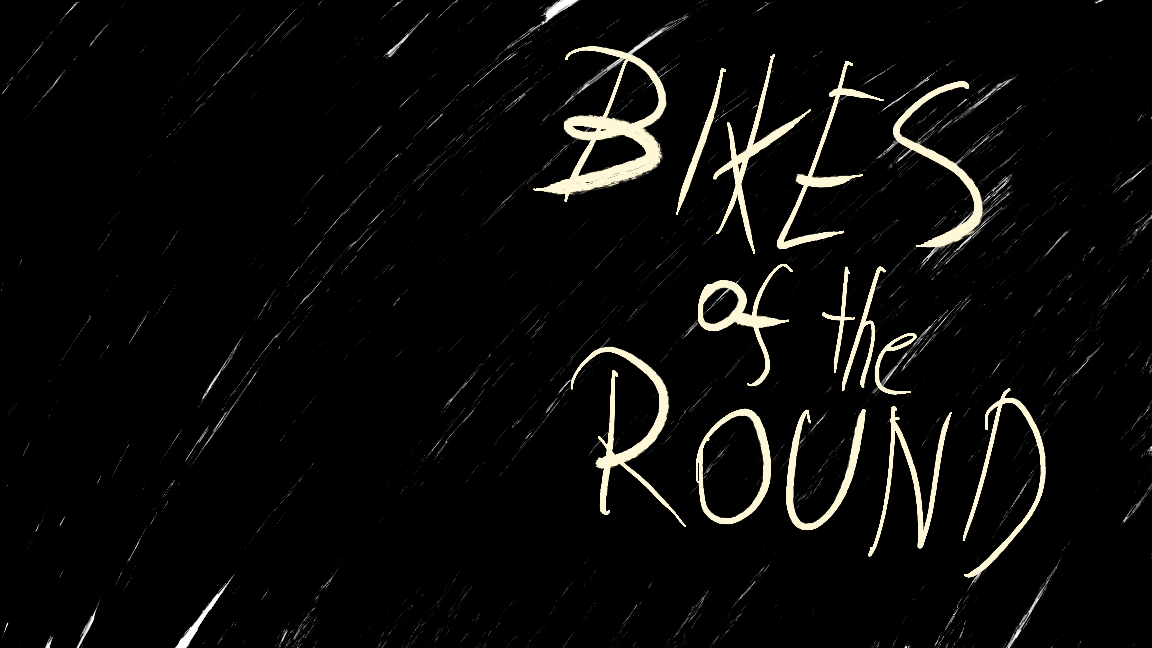 BIKES
of the
ROUND